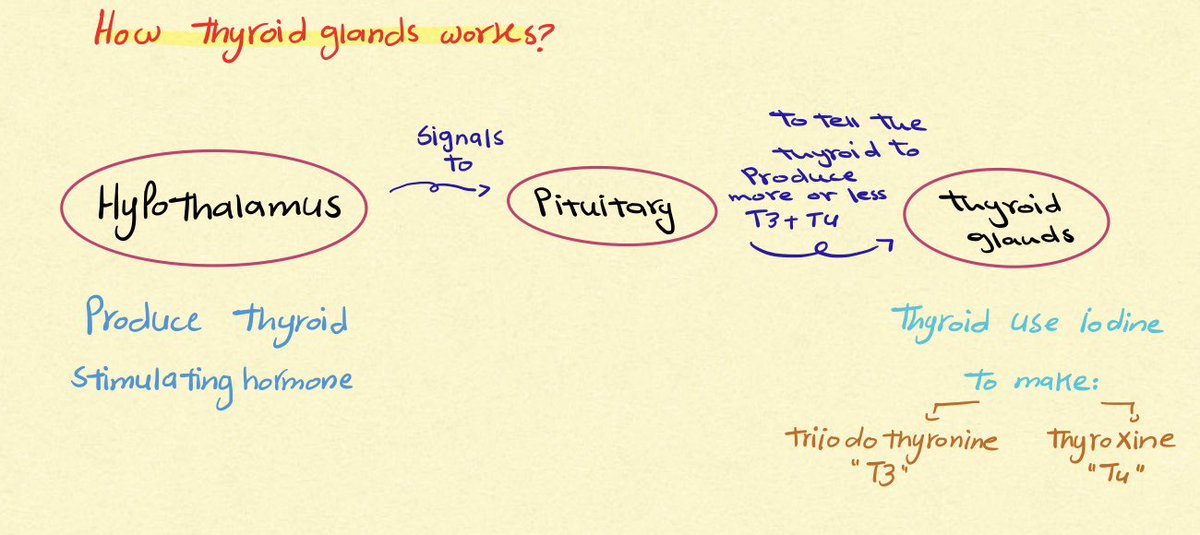 How thyroid glands works?
Signals
to
To tell the
thyroid to
Produce
more or less
T3 + T4
Hypothalamus
Pituitary
thyroid
glands
Produce thyroid
Stimulating hormone
Thyroid use iodine
to make:
triiodothyronine
"T3"
thyroxine
"T4"